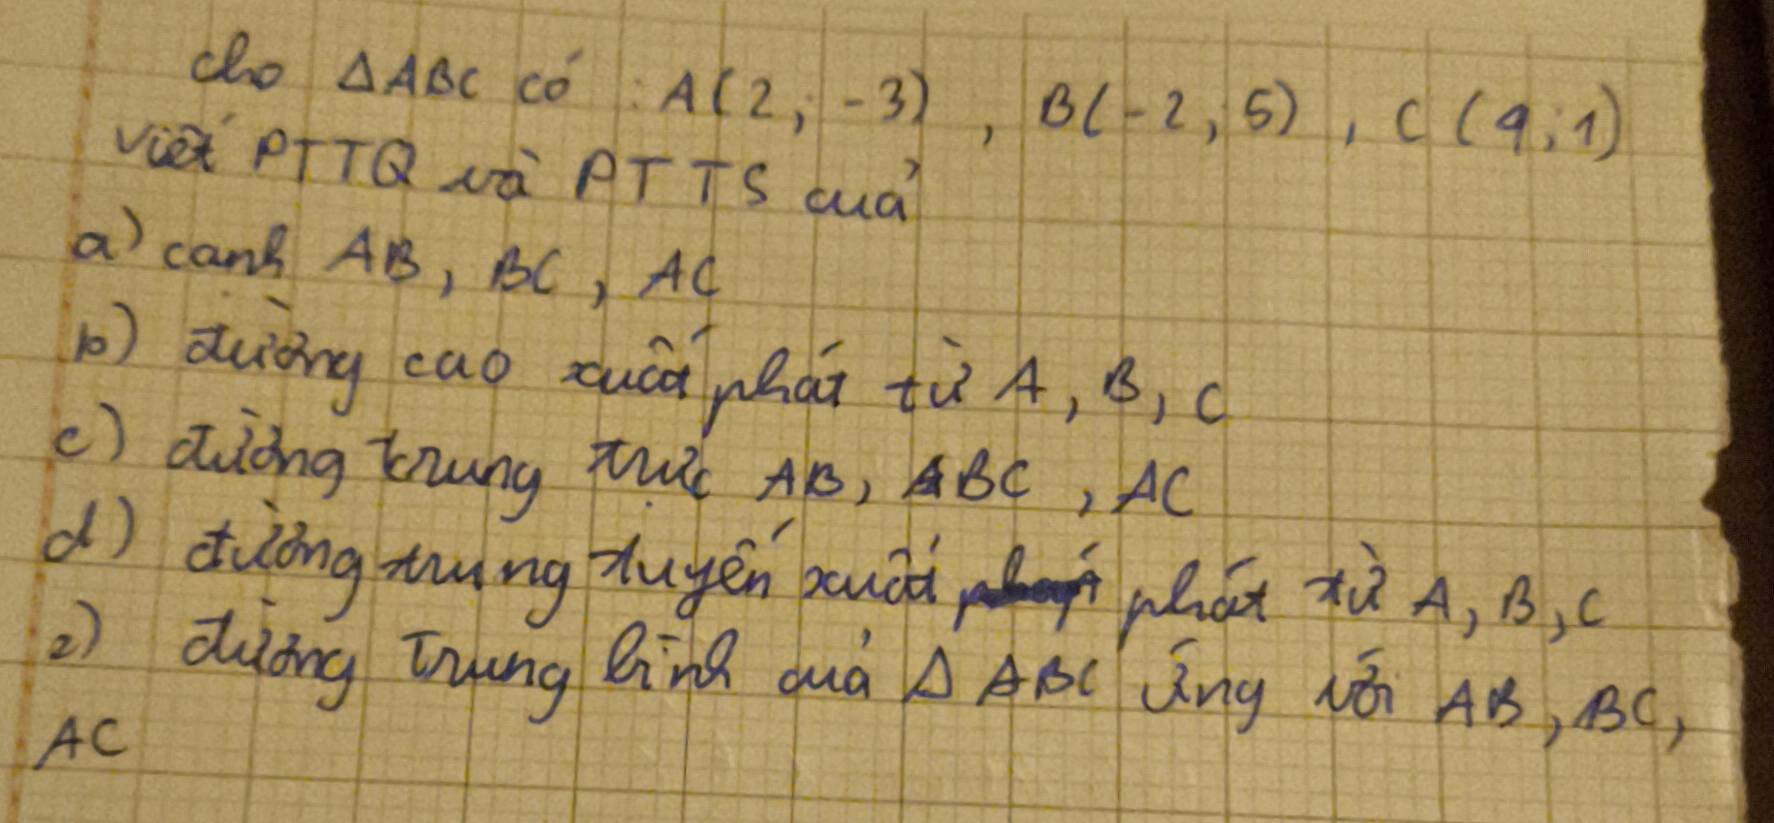 cho ΔABC có : A(2; -3), B(-2; 5), C(4; 1)
viết PTTQ và PTTS của
a) cạnh AB, BC, AC
b) đường cao xuất phát từ A, B, C
c) đường trung trực AB, BC, AC
d) đường trung tuyến xuất phát từ A, B, C
e) đường trung bình của Δ ABC ứng với AB, BC,
AC